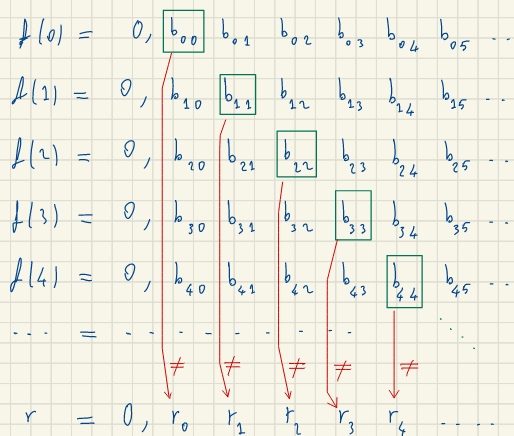 f(0) = 0, b₀₀ b₀₁ b₀₂ b₀₃ b₀₄ b₀₅ ...
f(1) = 0, b₁₀ b₁₁ b₁₂ b₁₃ b₁₄ b₁₅ ...
f(2) = 0, b₂₀ b₂₁ b₂₂ b₂₃ b₂₄ b₂₅ ...
f(3) = 0, b₃₀ b₃₁ b₃₂ b₃₃ b₃₄ b₃₅ ...
f(4) = 0, b₄₀ b₄₁ b₄₂ b₄₃ b₄₄ b₄₅ ...
... = - - - - - - - - - -
≠ ≠ ≠ ≠ ≠
r = 0, r₀ r₁ r₂ r₃ r₄ ....